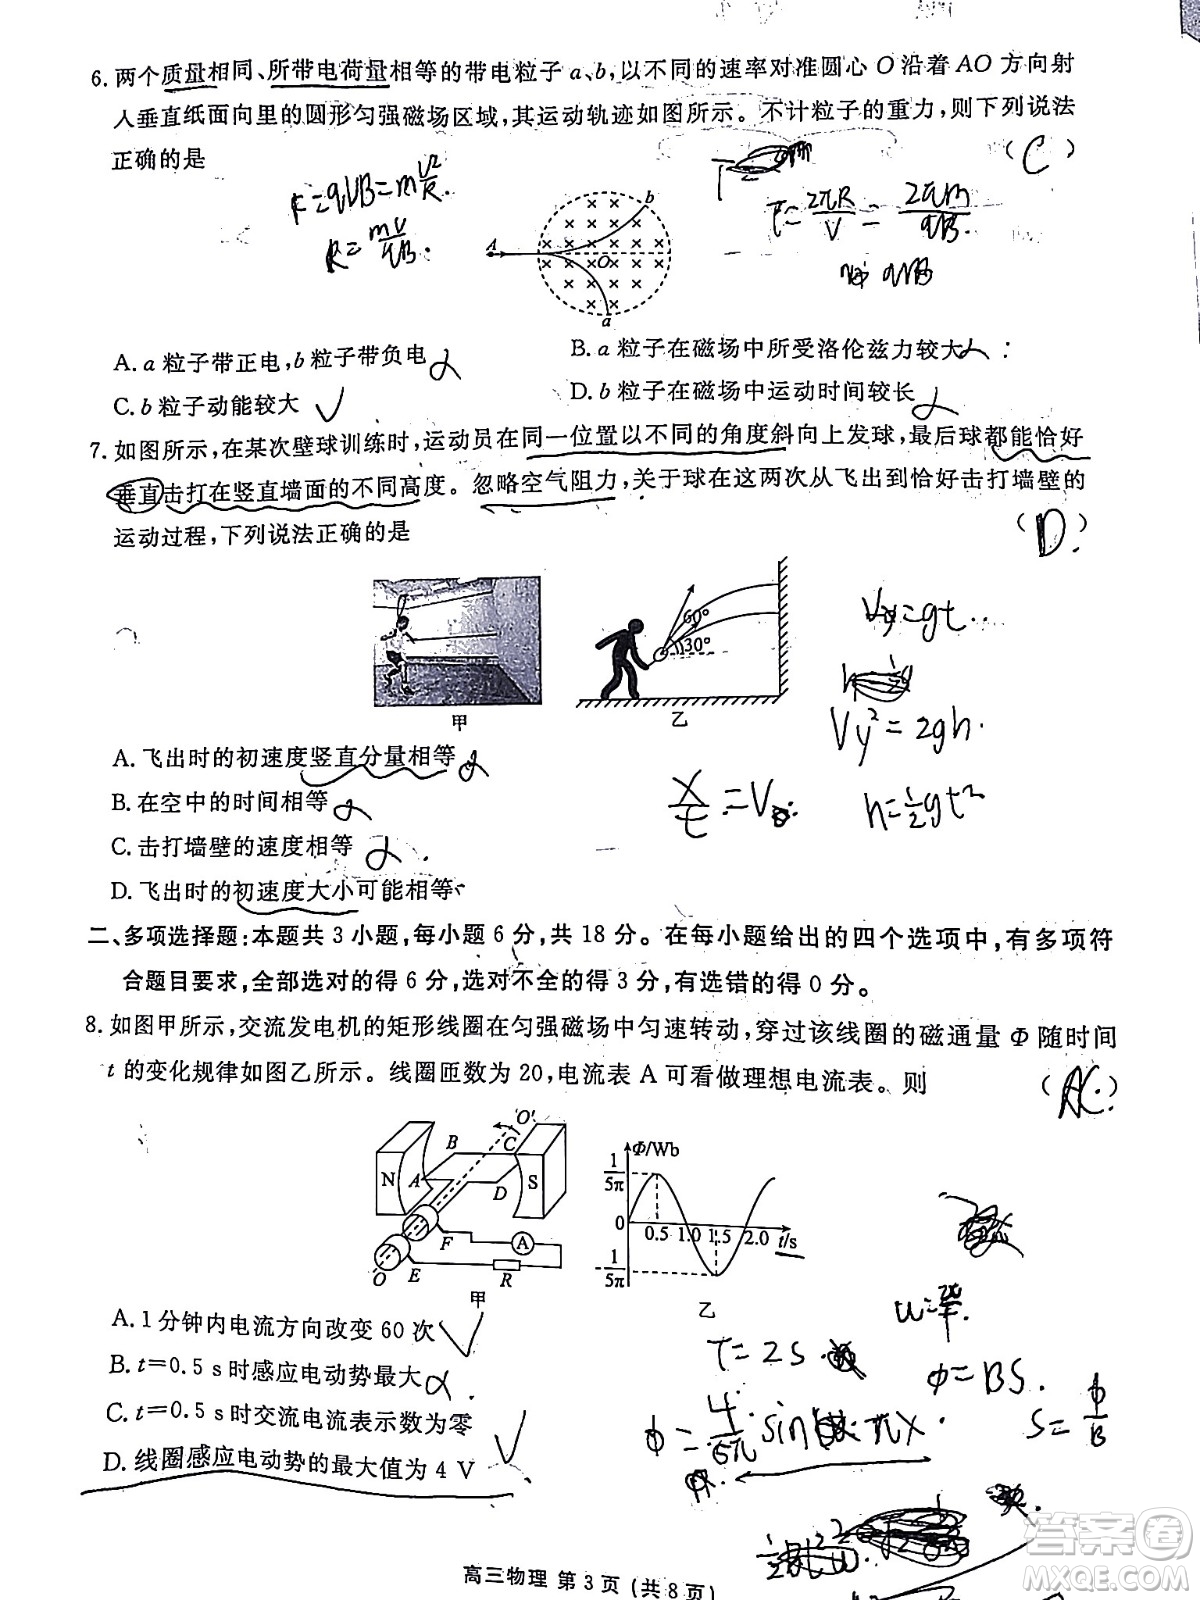 6.两个质量相同、所带电荷量相等的带电粒子 a、b,以不同的速率对准圆心 O 沿着 AO 方向射
入垂直纸面向里的圆形匀强磁场区域,其运动轨迹如图所示。不计粒子的重力,则下列说法
正确的是 (C)
F=qVB=mV²/R.
R=mV/qB.
T=2πR/V=2πm/qB.
qVB
A
b
O
a
A. a 粒子带正电,b 粒子带负电
B. a 粒子在磁场中所受洛伦兹力较大
C. b 粒子动能较大 √
D. b 粒子在磁场中运动时间较长
7.如图所示,在某次壁球训练时,运动员在同一位置以不同的角度斜向上发球,最后球都能恰好
垂直击打在竖直墙面的不同高度。忽略空气阻力,关于球在这两次从飞出到恰好击打墙壁的
运动过程,下列说法正确的是 (D.)
60°
30°
甲
乙
Vy=gt.
Vy²=2gh.
h=½gt²
A. 飞出时的初速度竖直分量相等
B. 在空中的时间相等
C. 击打墙壁的速度相等
D. 飞出时的初速度大小可能相等
二、多项选择题:本题共 3 小题,每小题 6 分,共 18 分。在每小题给出的四个选项中,有多项符
合题目要求,全部选对的得 6 分,选对不全的得 3 分,有选错的得 0 分。
8.如图甲所示,交流发电机的矩形线圈在匀强磁场中匀速转动,穿过该线圈的磁通量 Φ 随时间
t 的变化规律如图乙所示。线圈匝数为 20,电流表 A 可看做理想电流表。则 (AC.)
O′
B
C
N
A
D
S
F
A
O
E
R
甲
Φ/Wb
1/5π
0
0.5 1.0 1.5 2.0 t/s
-1/5π
乙
A. 1 分钟内电流方向改变 60 次 √
B. t=0.5 s 时感应电动势最大
C. t=0.5 s 时交流电流表示数为零 √
D. 线圈感应电动势的最大值为 4 V
T=2S
Φ=BS.
S=Φ/B
高三物理 第 3 页 (共 8 页)
答案圈
MXQE.COM